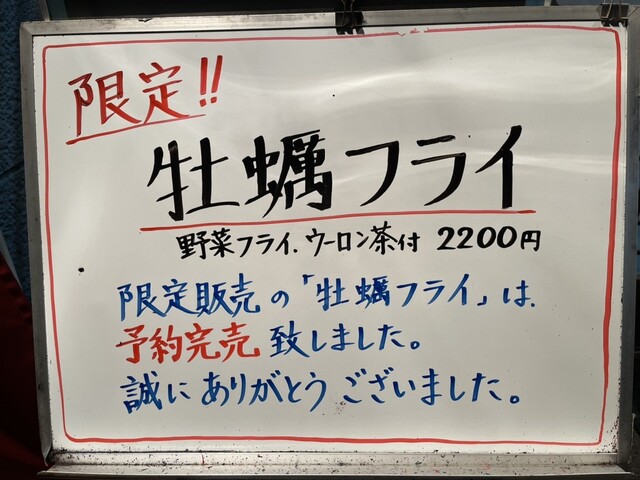 限定!!
牡蠣フライ
野菜フライ.ウーロン茶付 2200円
限定販売の「牡蠣フライ」は、
予約完売致しました。
誠にありがとうございました。